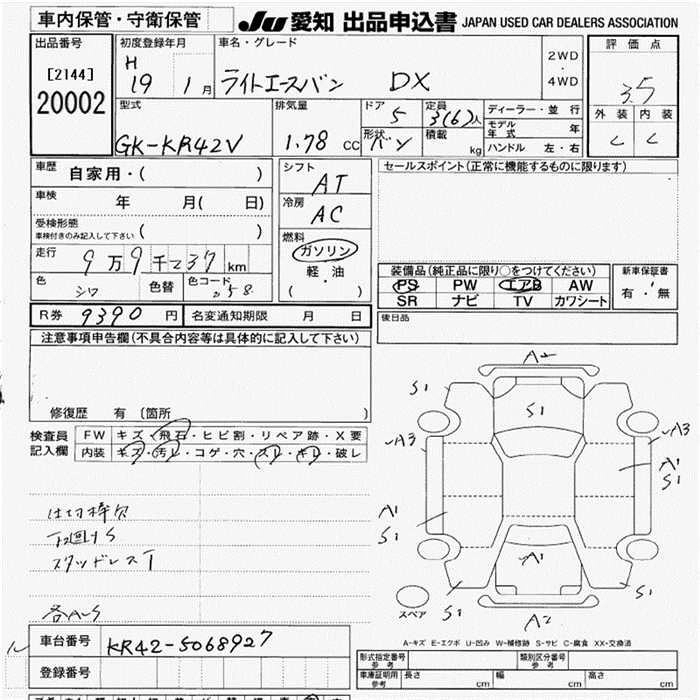 車内保管・守衛保管
JU 愛知 出品申込書 JAPAN USED CAR DEALERS ASSOCIATION
出品番号
[2144]
20002
初度登録年月
H 19 1月
車名・グレード
ライトエースバン DX
2WD
・
4WD
評価点
3.5
外装 内装
C C
型式
GK-KR42V
排気量
1.78 cc
ドア
5
形状
バン
定員
3(6)人
積載
kg
ディーラー・並行
モデル年式 年
ハンドル 左・右
車歴
自家用・( )
車検
年 月( 日)
受検形態
車検付きのみ記入して下さい ( )
走行
9万9千237km
色
シロ
色替
色コード
058
シフト
AT
冷房
AC
燃料
ガソリン
軽・油
( )
セールスポイント(正常に機能するものに限ります)
装備品(純正品に限り○をつけてください)
PS PW エアB AW
SR ナビ TV カワシート
新車保証書
有・無
R券 9390円
名変通知期限 月 日
後日品
注意事項申告欄(不具合内容等は具体的に記入して下さい)
修復歴 有 〔箇所 〕
検査員記入欄
FW キズ・飛石・ヒビ割・リペア跡・X要
内装 キズ・汚レ・コゲ・穴・スレ・キレ・破レ
下廻りS
スタッドレスT
各A-S
A2
S1
S1
S1
A3
A3
A1
S1
A1
S1
A1
S1
S1
A2
スペア
A-キズ E-エクボ U-凹み W-補修跡 S-サビ C-腐食 XX-交換済
車台番号
KR42-5068927
登録番号
形式指定番号
参考
類別区分番号
参考
車庫証明用
参考
長さ cm
幅 cm
高さ cm